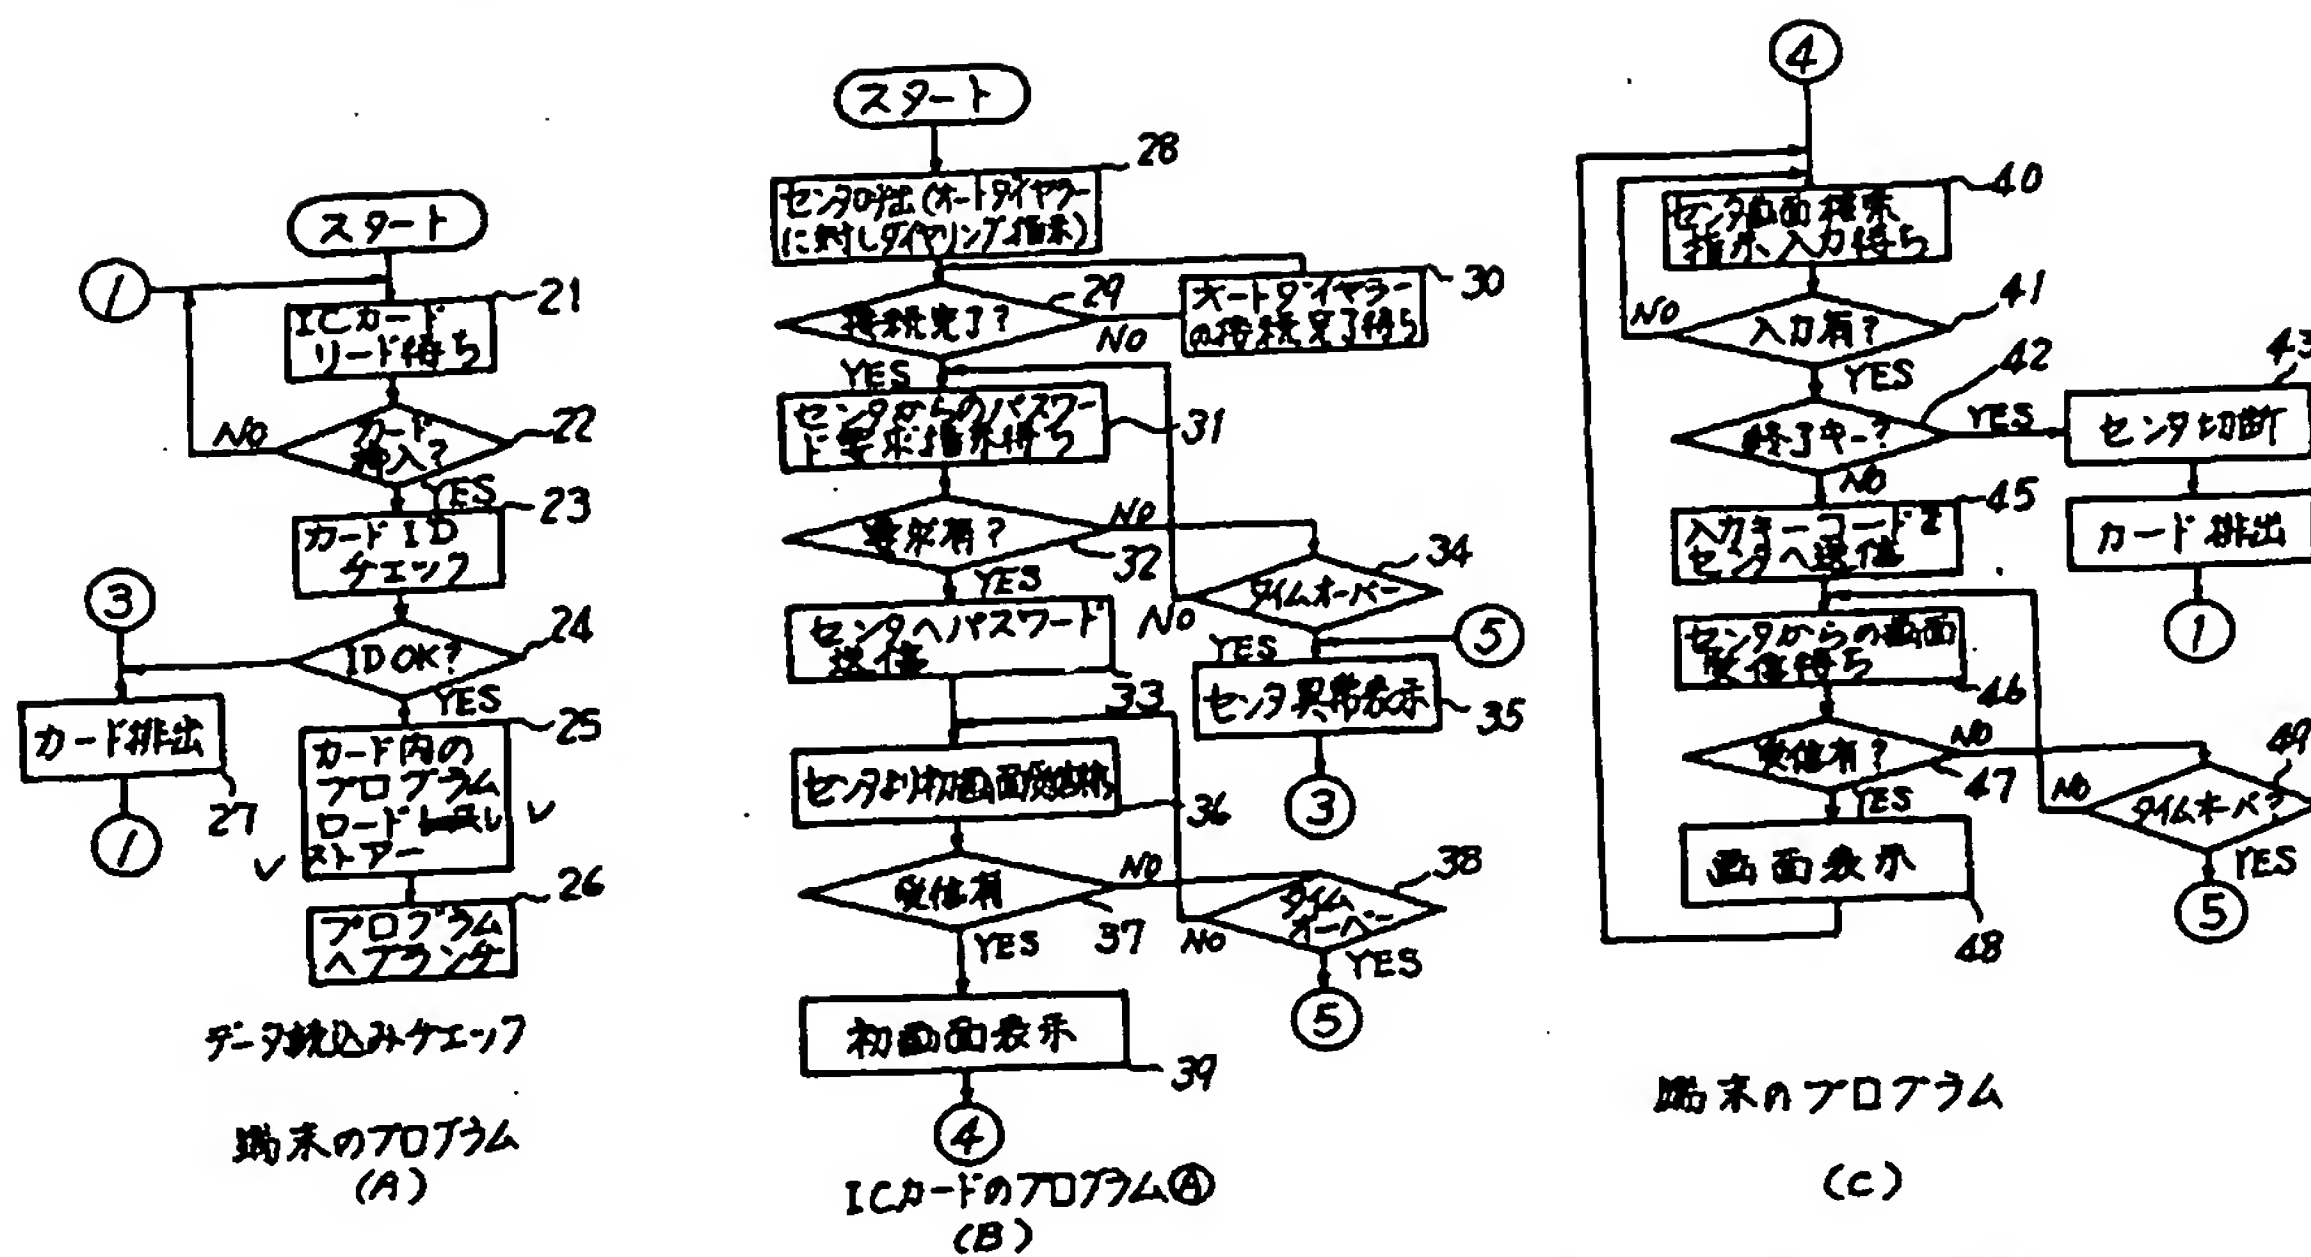 スタート
①
ICカード
リード待ち
21
カード
挿入?
22
NO
YES
カードID
チェック
23
③
ID OK?
24
YES
カード排出
27
①
カード内の
プログラム
ロード
ストアー
25
プログラム
へブランチ
26
データ読込みチェック
端末のプログラム
(A)
スタート
センタ呼出(オートダイヤラー
に対しダイヤリング指示)
28
接続完了?
29
NO
オートダイヤラー
の接続完了待ち
30
YES
センタからのパスワー
ド要求指示待ち
31
要求有?
32
NO
YES
タイムオーバー
34
NO
YES
⑤
センタへパスワード
送信
33
センタ異常表示
35
③
センタより初画面
36
受信有
37
NO
YES
タイム
オーバー
38
NO
YES
⑤
初画面表示
39
④
ICカードのプログラムⒶ
(B)
④
センタ画面検索
指示入力待ち
40
入力有?
41
NO
YES
終了キー?
42
YES
NO
センタ切断
43
カード排出
①
入力キーコードを
センタへ送信
45
センタからの画面
受信待ち
46
受信有?
47
NO
YES
タイムオーバ?
49
NO
YES
⑤
画面表示
48
端末のプログラム
(C)